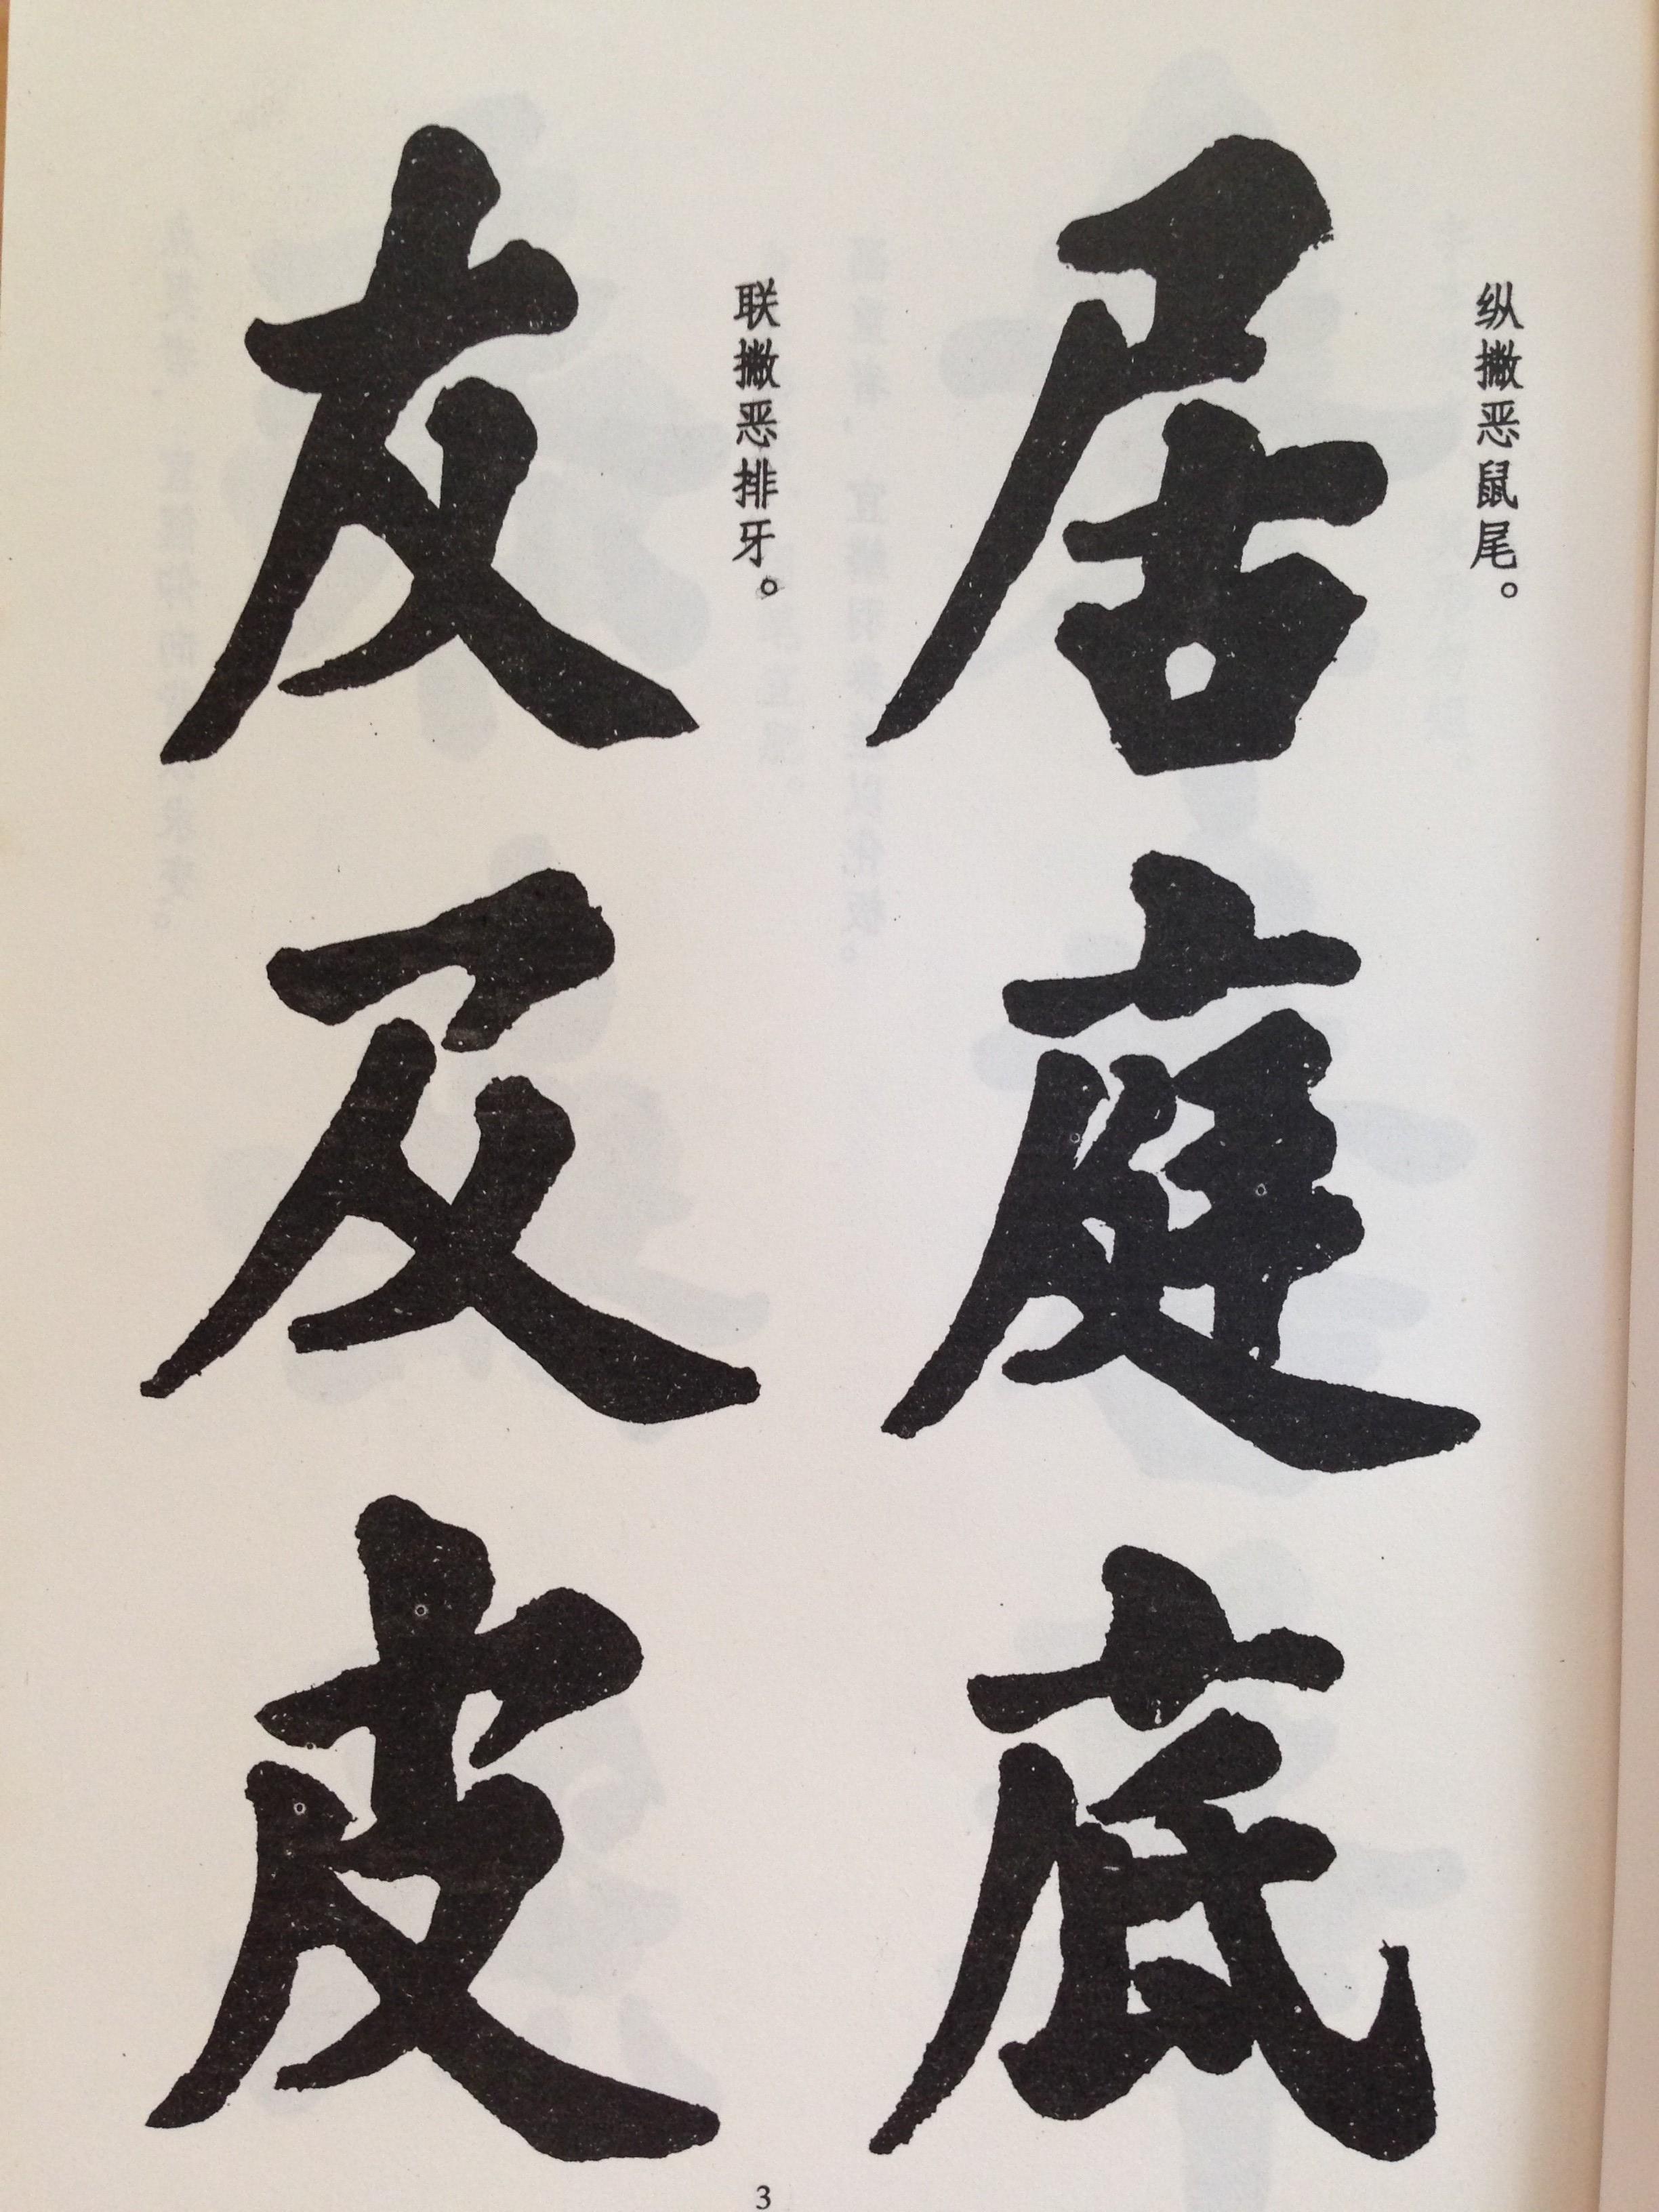 纵撇恶鼠尾。
居庭底
联撇恶排牙。
友及皮
3